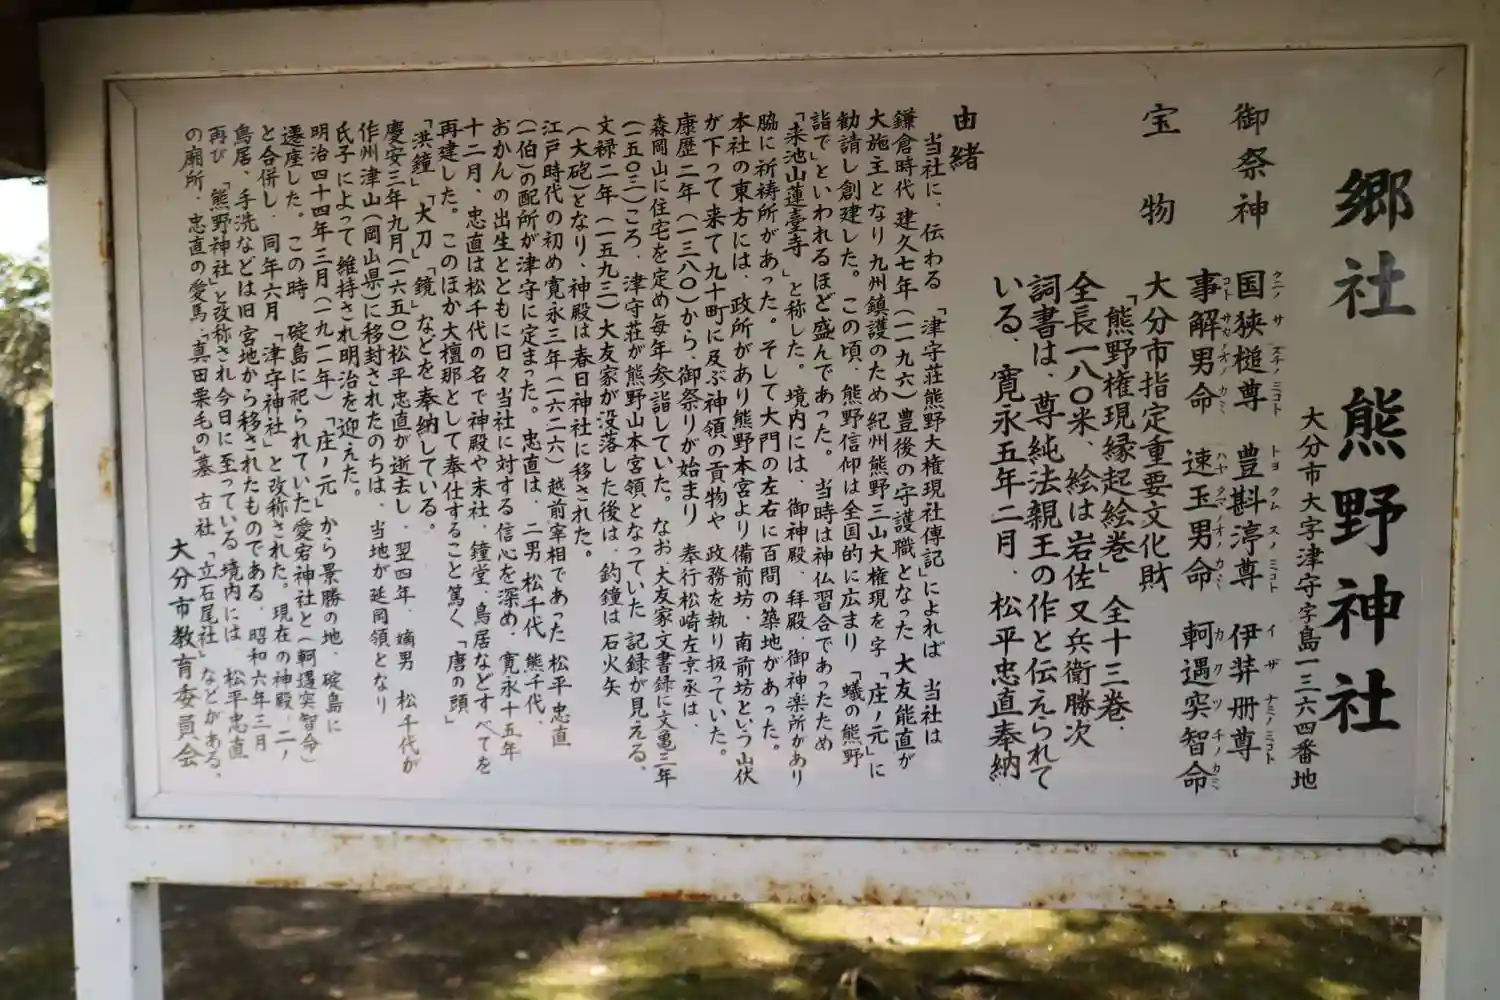 郷社 熊野神社
大分市大字津守字島一三六四番地
御祭神
国狭槌尊 豊斟渟尊 伊弉冊尊
クニノサヅチノミコト トヨクムスノミコト イザナミノミコト
事解男命 速玉男命 軻遇突智命
コトサカノオノカミ ハヤタマノオノカミ カクツチノカミ
宝物
大分市指定重要文化財
「熊野権現縁起絵巻」全十三巻.
全長一八〇米、絵は岩佐又兵衛勝次
詞書は、尊純法親王の作と伝えられて
いる、寛永五年二月、松平忠直奉納
由緒
当社に、伝わる「津守荘熊野大権現社傳記」によれば 当社は
鎌倉時代 建久七年(一一九六)豊後の守護職となった 大友能直が
大施主となり九州鎮護のため紀州熊野三山大権現を字「庄ノ元」に
勧請し創建した。この頃、熊野信仰は全国的に広まり「蟻の熊野
詣で」といわれるほど盛んであった。当時は神仏習合であったため
「来池山蓮臺寺」と称した。境内には、御神殿、拝殿、御神楽所があり
脇に祈祷所があった。そして大門の左右に百間の築地があった。
本社の東方には、政所があり熊野本宮より備前坊、南前坊という山伏
が下って来て九十町に及ぶ神領の貢物や 政務を執り扱っていた。
康歴二年(一三八〇)から、御祭りが始まり 奉行松崎左京亟は、
森岡山に住宅を定め毎年参詣していた。なお、大友家文書録に文亀三年
(一五〇三)ころ、津守荘が熊野山本宮領となっていた 記録が見える、
文禄二年(一五九三)大友家が没落した後は、釣鐘は 石火矢
(大砲)となり、神殿は春日神社に移された。
江戸時代の初め 寛永三年(一六二六)越前宰相であった 松平忠直
(一伯)の配所が津守に定まった。忠直は、二男 松千代、熊千代、
おかんの出生とともに日々当社に対する信心を深め、寛永十五年
十二月、忠直は松千代の名で神殿や末社、鐘堂、鳥居などすべてを
再建した。このほか大檀那として奉仕すること篤く「唐の頭」
「洪鐘」「大刀」「鏡」などを奉納している。
慶安三年九月(一六五〇)松平忠直が逝去し、翌四年、嫡男 松千代が
作州津山(岡山県)に移封されたのちは、当地が延岡領となり
氏子によって維持され明治を迎えた。
明治四十四年三月(一九一一年)「庄ノ元」から景勝の地、碇島に
遷座した。この時 碇島に祀られていた愛宕神社と(軻遇突智命)
と合併し、同年六月「津守神社」と改称された。現在の神殿、二ノ
鳥居、手洗などは旧宮地から移されたものである、昭和六年三月
再び「熊野神社」と改称され今日に至っている 境内には 松平忠直
の廟所、忠直の愛馬「真田栗毛の」墓 古社「立石尾社」などがある、
大分市教育委員会